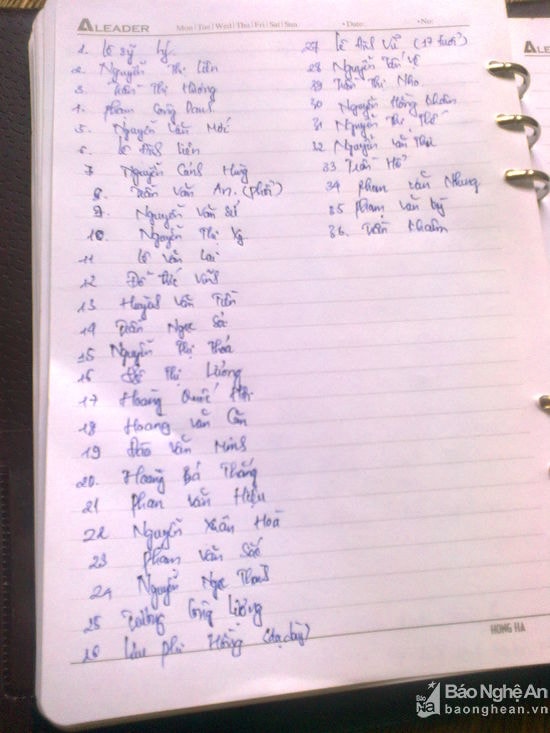 ALEADER
Mon | Tue | Wed | Thu | Fri | Sat | Sun
Date: No:
1. Lê Sỹ Lý
2. Nguyễn Thị Liên
3. Trần Thị Hương
4. Phạm Công Danh
5. Nguyễn Văn
6. Lê Đình Liên
7 Nguyễn Cảnh Hùng
8. Trần Văn An. (phổi)
9. Nguyễn Văn
10. Nguyễn Thị Kỷ
11 Lê Văn Lai
12 Đỗ Thế Vinh
13 Huỳnh Văn Tiến
14 Trần Ngọc
15 Nguyễn Thị Thoá
16 Thị Lương
17 Hoàng Quốc
18 Hoang Văn Cần
19 Đào Văn Minh
20. Hoàng Bá Thắng
21 Phan Văn Hiệu
22 Nguyễn Xuân Hoà
23 Phạm Văn
24 Nguyễn Ngọc Thanh
25 Công Lượng
26 Hồng (dạ dày)
27 Lê Đình Vũ (17 tuổi)
28 Nguyễn Tấn Vệ
29 Trần Thị Nho
30 Nguyễn Hồng Nhâm
31 Nguyễn Thị Thế
32 Nguyễn Văn Thư
33 Trần Hổ
34 Phạm Văn Nhung
35 Phạm Văn
36. Trần Nhâm
HONG HA
ALEADER
Báo Nghệ An
baonghean.vn